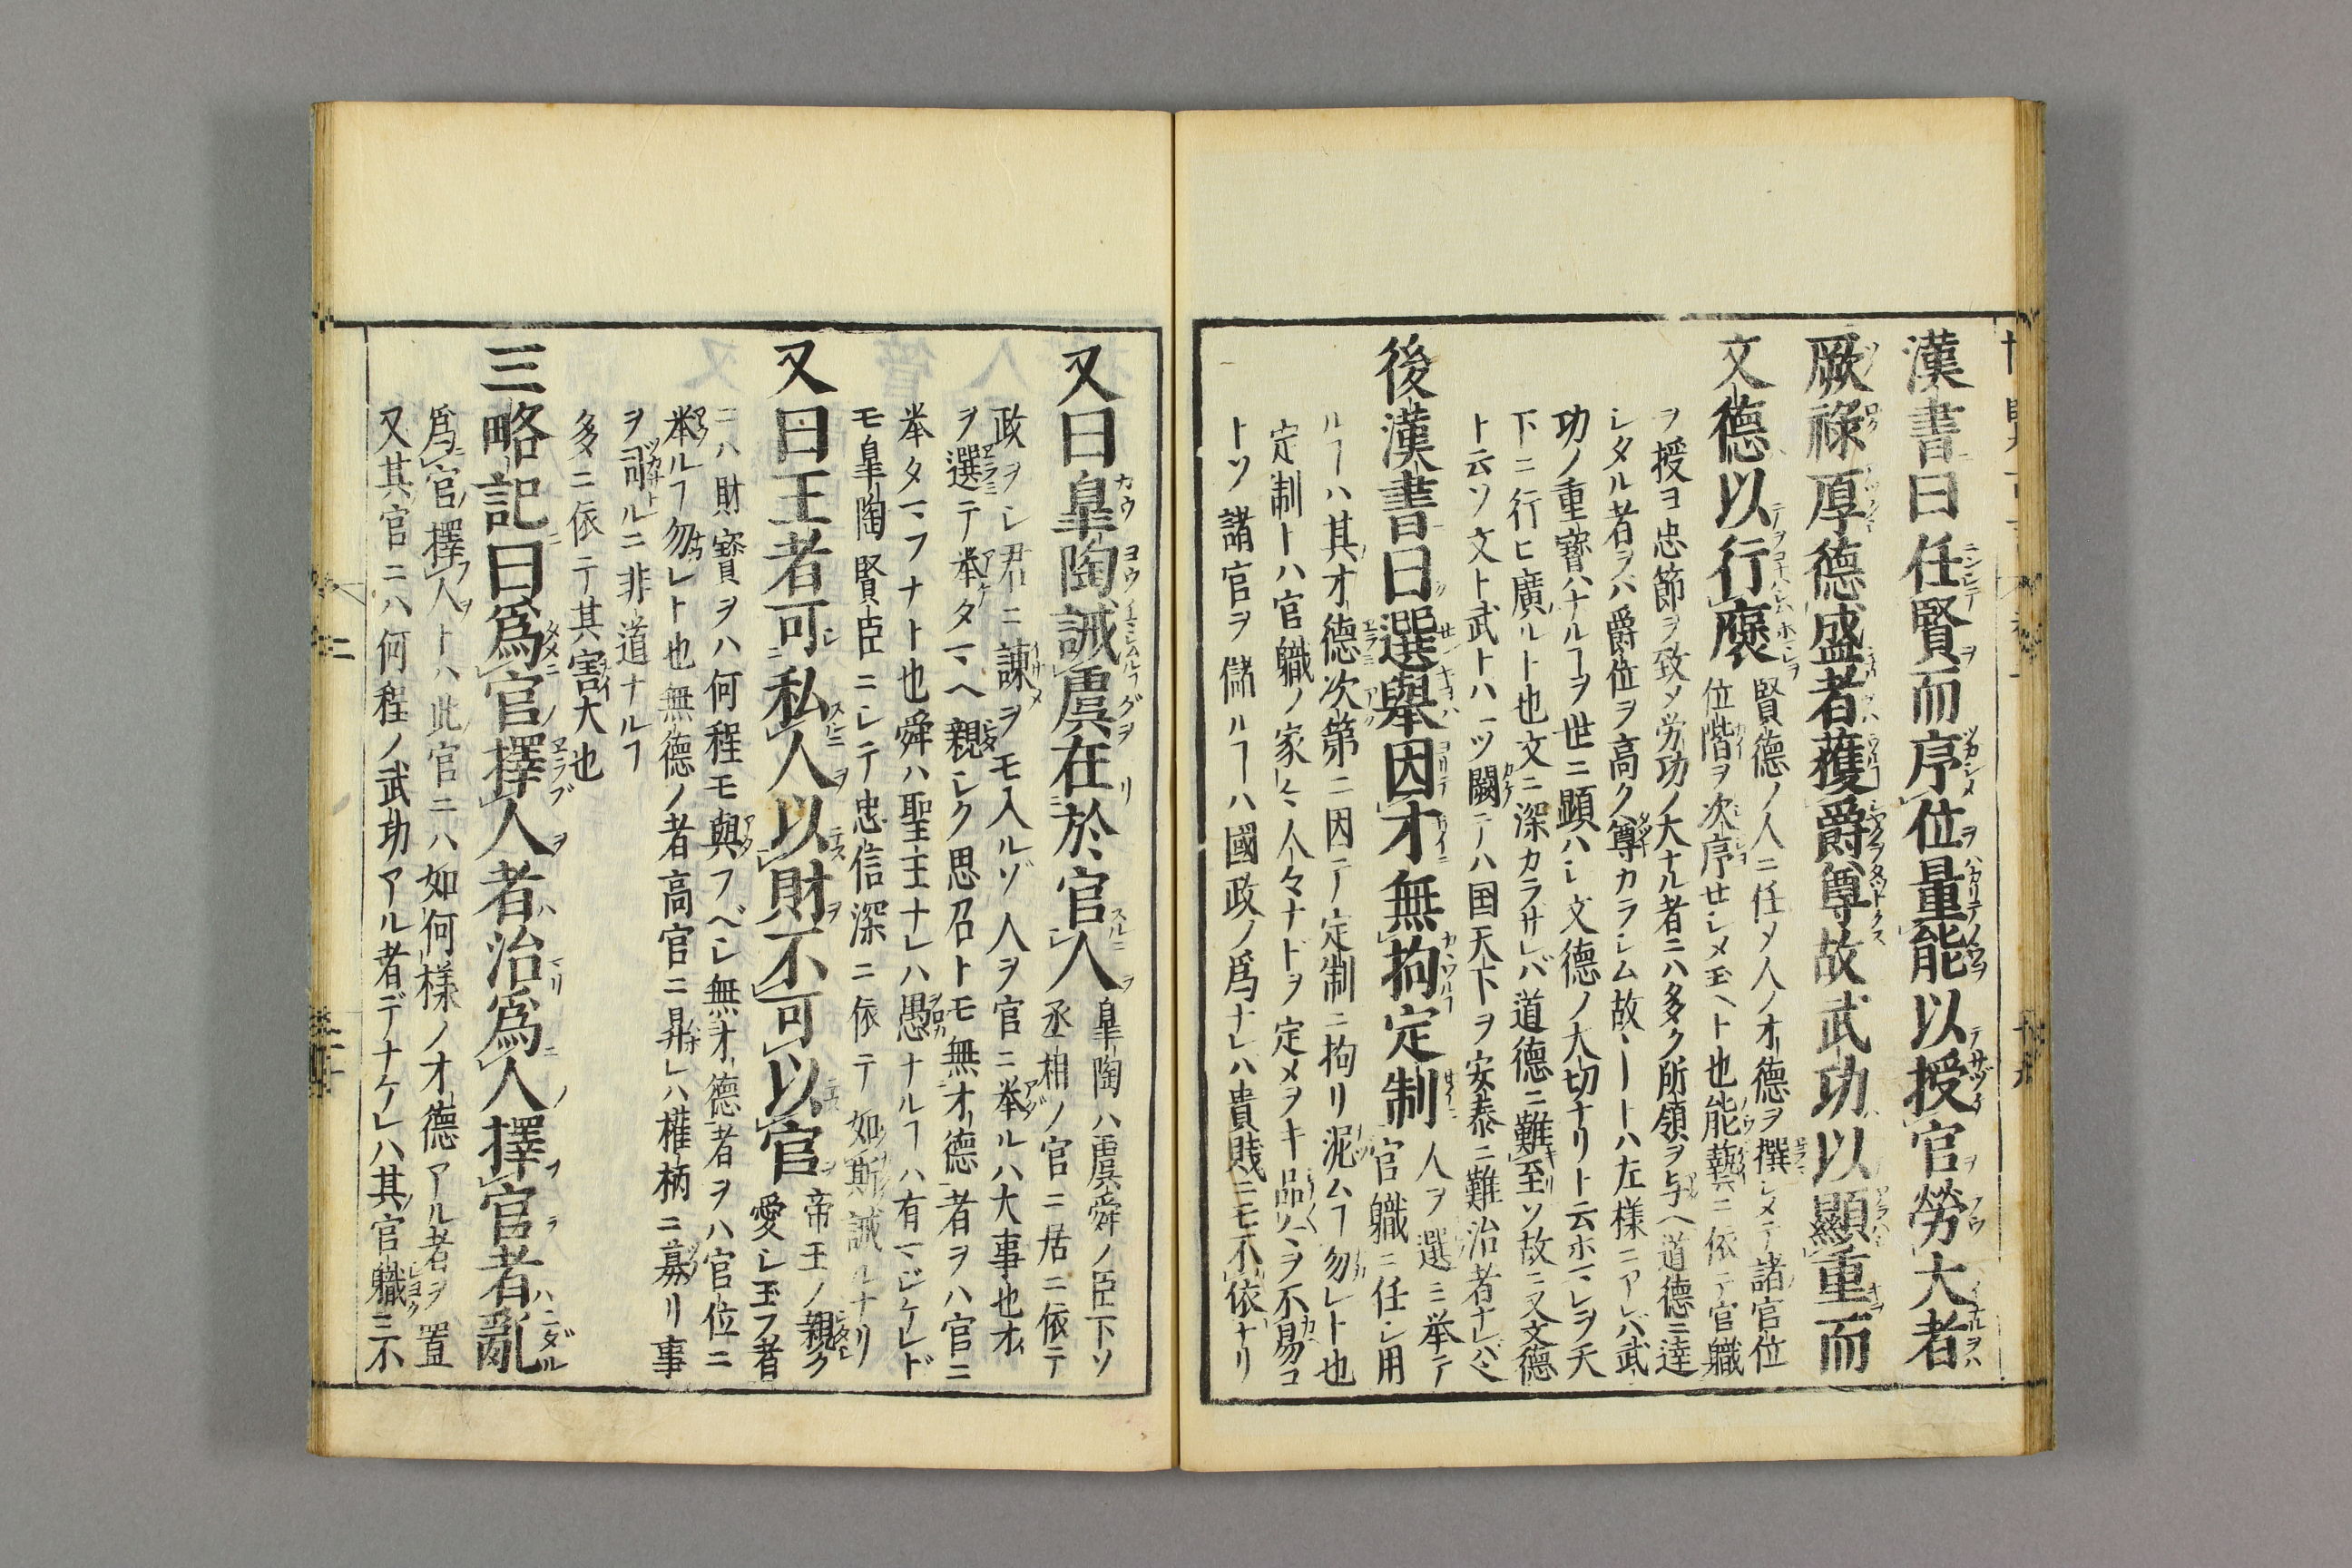 漢書曰任賢而序位量能以授官勞大者
厥祿厚德盛者蒦爵尊故武功以顯重而
文德以行褒
賢德ノ人ニ任メ人ノ才德ヲ撰シメテ諸官位
位階ヲ次序セシメ玉ヘト也能藝ニ依テ官職
ヲ授ヨ忠節ヲ致メ労功ノ大ナル者ニハ多ク所領ヲ与ヘ道德ニ達
シタル者ヲバ爵位ヲ高ク尊カラシム故ニートハ左様ニアレバ武
功ノ重寶ハナルヿヲ世ニ顕ハシ文德ノ大切ナリト云ホマレヲ天
下ニ行ヒ廣ルト也文ニ深カラサレバ道德ニ難至ソ故ニ又文德
ト云ソ文ト武トハ一ツ闕テハ国天下ヲ安泰ニ難治者ナレバ
後漢書曰選舉因才無拘定制
人ヲ選ミ举テ
官職ニ任シ用
ルヿハ其才德次第ニ因テ定制ニ拘リ泥ムヿ勿レト也
定制トハ官職ノ家々人々ナドヲ定メヲキ品々ヲ不易コ
トソ諸官ヲ儲ルヿハ國政ノ爲ナレハ貴賎ニモ不依ナリ
又曰皐陶誡虞在於官人
皐陶ハ虞舜ノ臣下ソ
丞相ノ官ニ居ニ依テ
政ヲシ君ニ諫ヲモ入ルゾ人ヲ官ニ举ルハ大事也才
ヲ選テ举タマヘ親シク思召トモ無才德者ヲハ官ニ
举タマフナト也舜ハ聖主ナレハ愚ナルヿハ有マジケレド
モ皐陶賢臣ニシテ忠信深ニ依テ如斯誡ルナリ
又曰王者可私人以財不可以官
帝王ノ親ク
愛シ玉フ者
ニハ財寳ヲハ何程モ與フベシ無才德者ヲハ官位ニ
举ルヿ勿レト也無德ノ者高官ニ昇レハ權柄ニ募リ事
ヲ司ルニ非道ナルヿ
多ニ依テ其害大也
三略記曰爲官擇人者治爲人擇官者亂
爲官擇人トハ此官ニハ如何様ノ才德アル者ヲ置
又其官ニハ何程ノ武功アル者デナケレハ其官職ニ不